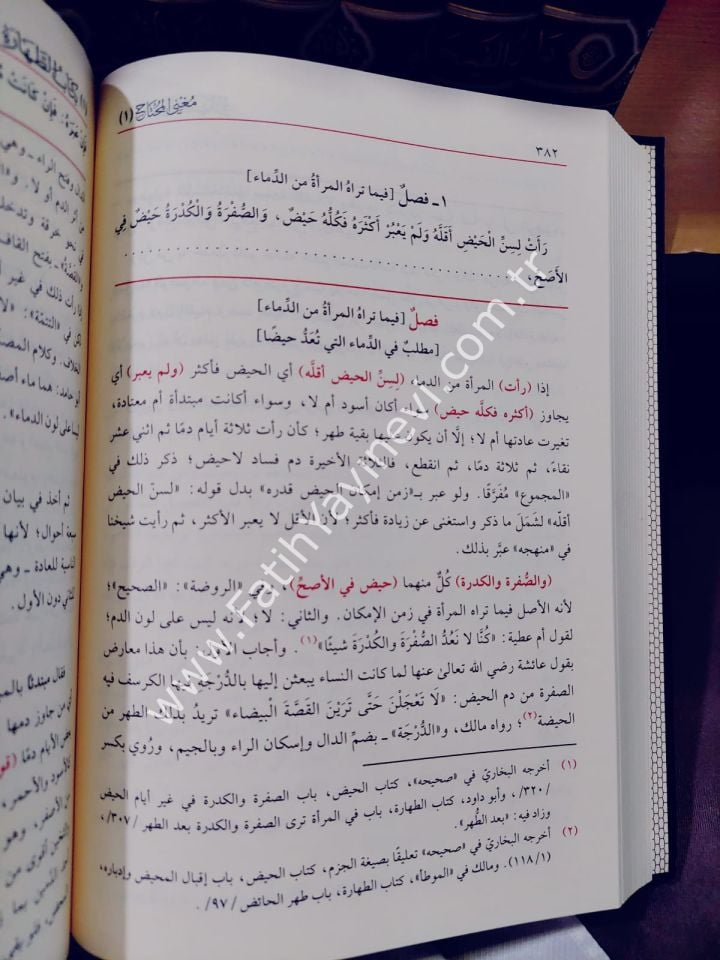 مغني المحتاج (١)
٣٨٢
١ ـ فصلٌ [فيما تراهُ المرأةُ من الدِّماء]
رَأَتْ لِسِنِّ الْحَيْضِ أَقَلَّهُ وَلَمْ يَعْبُرْ أَكْثَرَهُ فَكُلُّهُ حَيْضٌ، وَالصُّفْرَةُ وَالْكُدْرَةُ حَيْضٌ فِي
الأَصَحِّ،
فصلٌ [فيما تراهُ المرأةُ من الدِّماء]
[مطلبٌ في الدِّماء التي تُعَدُّ حيضًا]
إذا (رأت) المرأة من الدماء (لِسِنِّ الحيض أقلَّه) أي الحيض فأكثر (ولم يعبر) أي
يجاوز (أكثره فكلّه حيض) سواء أكان أسود أم لا، وسواء أكانت مبتدأة أم معتادة،
تغيرت عادتها أم لا؛ إلَّا أن يكون عليها بقية طهر؛ كأن رأت ثلاثة أيام دمًا ثم اثني عشر
نقاءً، ثم ثلاثة دمًا، ثم انقطع، فالثلاثة الأخيرة دم فساد لاحيض؛ ذكر ذلك في
«المجموع» مُفَرَّقًا. ولو عبر بـ«زمن إمكان الحيض قدره» بدل قوله: «لسنّ الحيض
أقلّه» لشَمَلَ ما ذكر واستغنى عن زيادة فأكثر؛ لأن الأقل لا يعبر الأكثر، ثم رأيت شيخنا
في «منهجه» عبَّر بذلك.
(والصُّفرة والكدرة) كُلٌّ منهما (حيض في الأصحِّ)، وفي «الروضة»: «الصحيح»؛
لأنه الأصل فيما تراه المرأة في زمن الإمكان. والثاني: لا؛ لأنه ليس على لون الدم؛
لقول أم عطية: «كُنَّا لا نَعُدُّ الصُّفْرَةَ وَالكُدْرَةَ شيئًا»(١). وأجاب الأول: بأن هذا معارض
بقول عائشة رضي الله تعالىٰ عنها لما كانت النساء يبعثن إليها بالدُّرْجَةِ فيها الكرسف فيه
الصفرة من دم الحيض: «لَا تَعْجَلْنَ حَتَّى تَرَيْنَ القَصَّةَ الْبيضاء» تريدُ بذلك الطهر من
الحيضة(٢)؛ رواه مالك، و«الدُّرْجَة» ـ بضمِّ الدال وإسكان الراء وبالجيم، ورُوي بكسر
(١) أخرجه البخاريّ في «صحيحه»، كتاب الحيض، باب الصفرة والكدرة في غير أيام الحيض
/٣٢٠/، وأبو داود، كتاب الطهارة، باب في المرأة ترى الصفرة والكدرة بعد الطهر /٣٠٧/،
وزاد فيه: «بعد الطُّهر».
(٢) أخرجه البخاريّ في «صحيحه» تعليقًا بصيغة الجزم، كتاب الحيض، باب إقبال المحيض وإدباره،
(١١٨/١). ومالك في «الموطأ»، كتاب الطهارة، باب طهر الحائض /٩٧/.
www.FatihYayinevi.com.tr